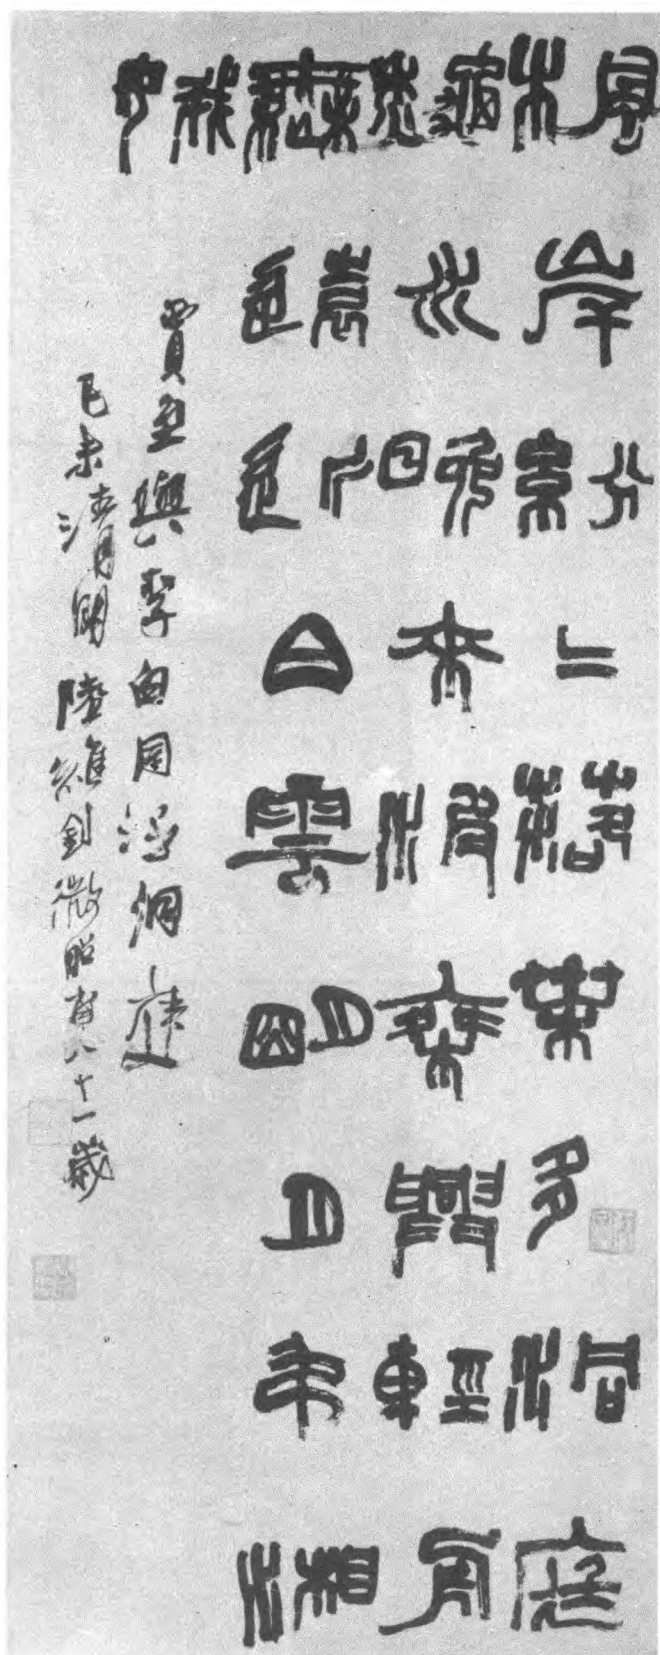 楓岸紛〻落葉多洞庭
秋水晚來波乘興輕舟
無遠近白雲明月弔湘
娥
賈至與李白同泛洞庭
己未清明陸維釗微昭甫八十一歲